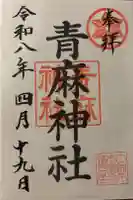 奉拝
青麻神社
令和八年四月十九日